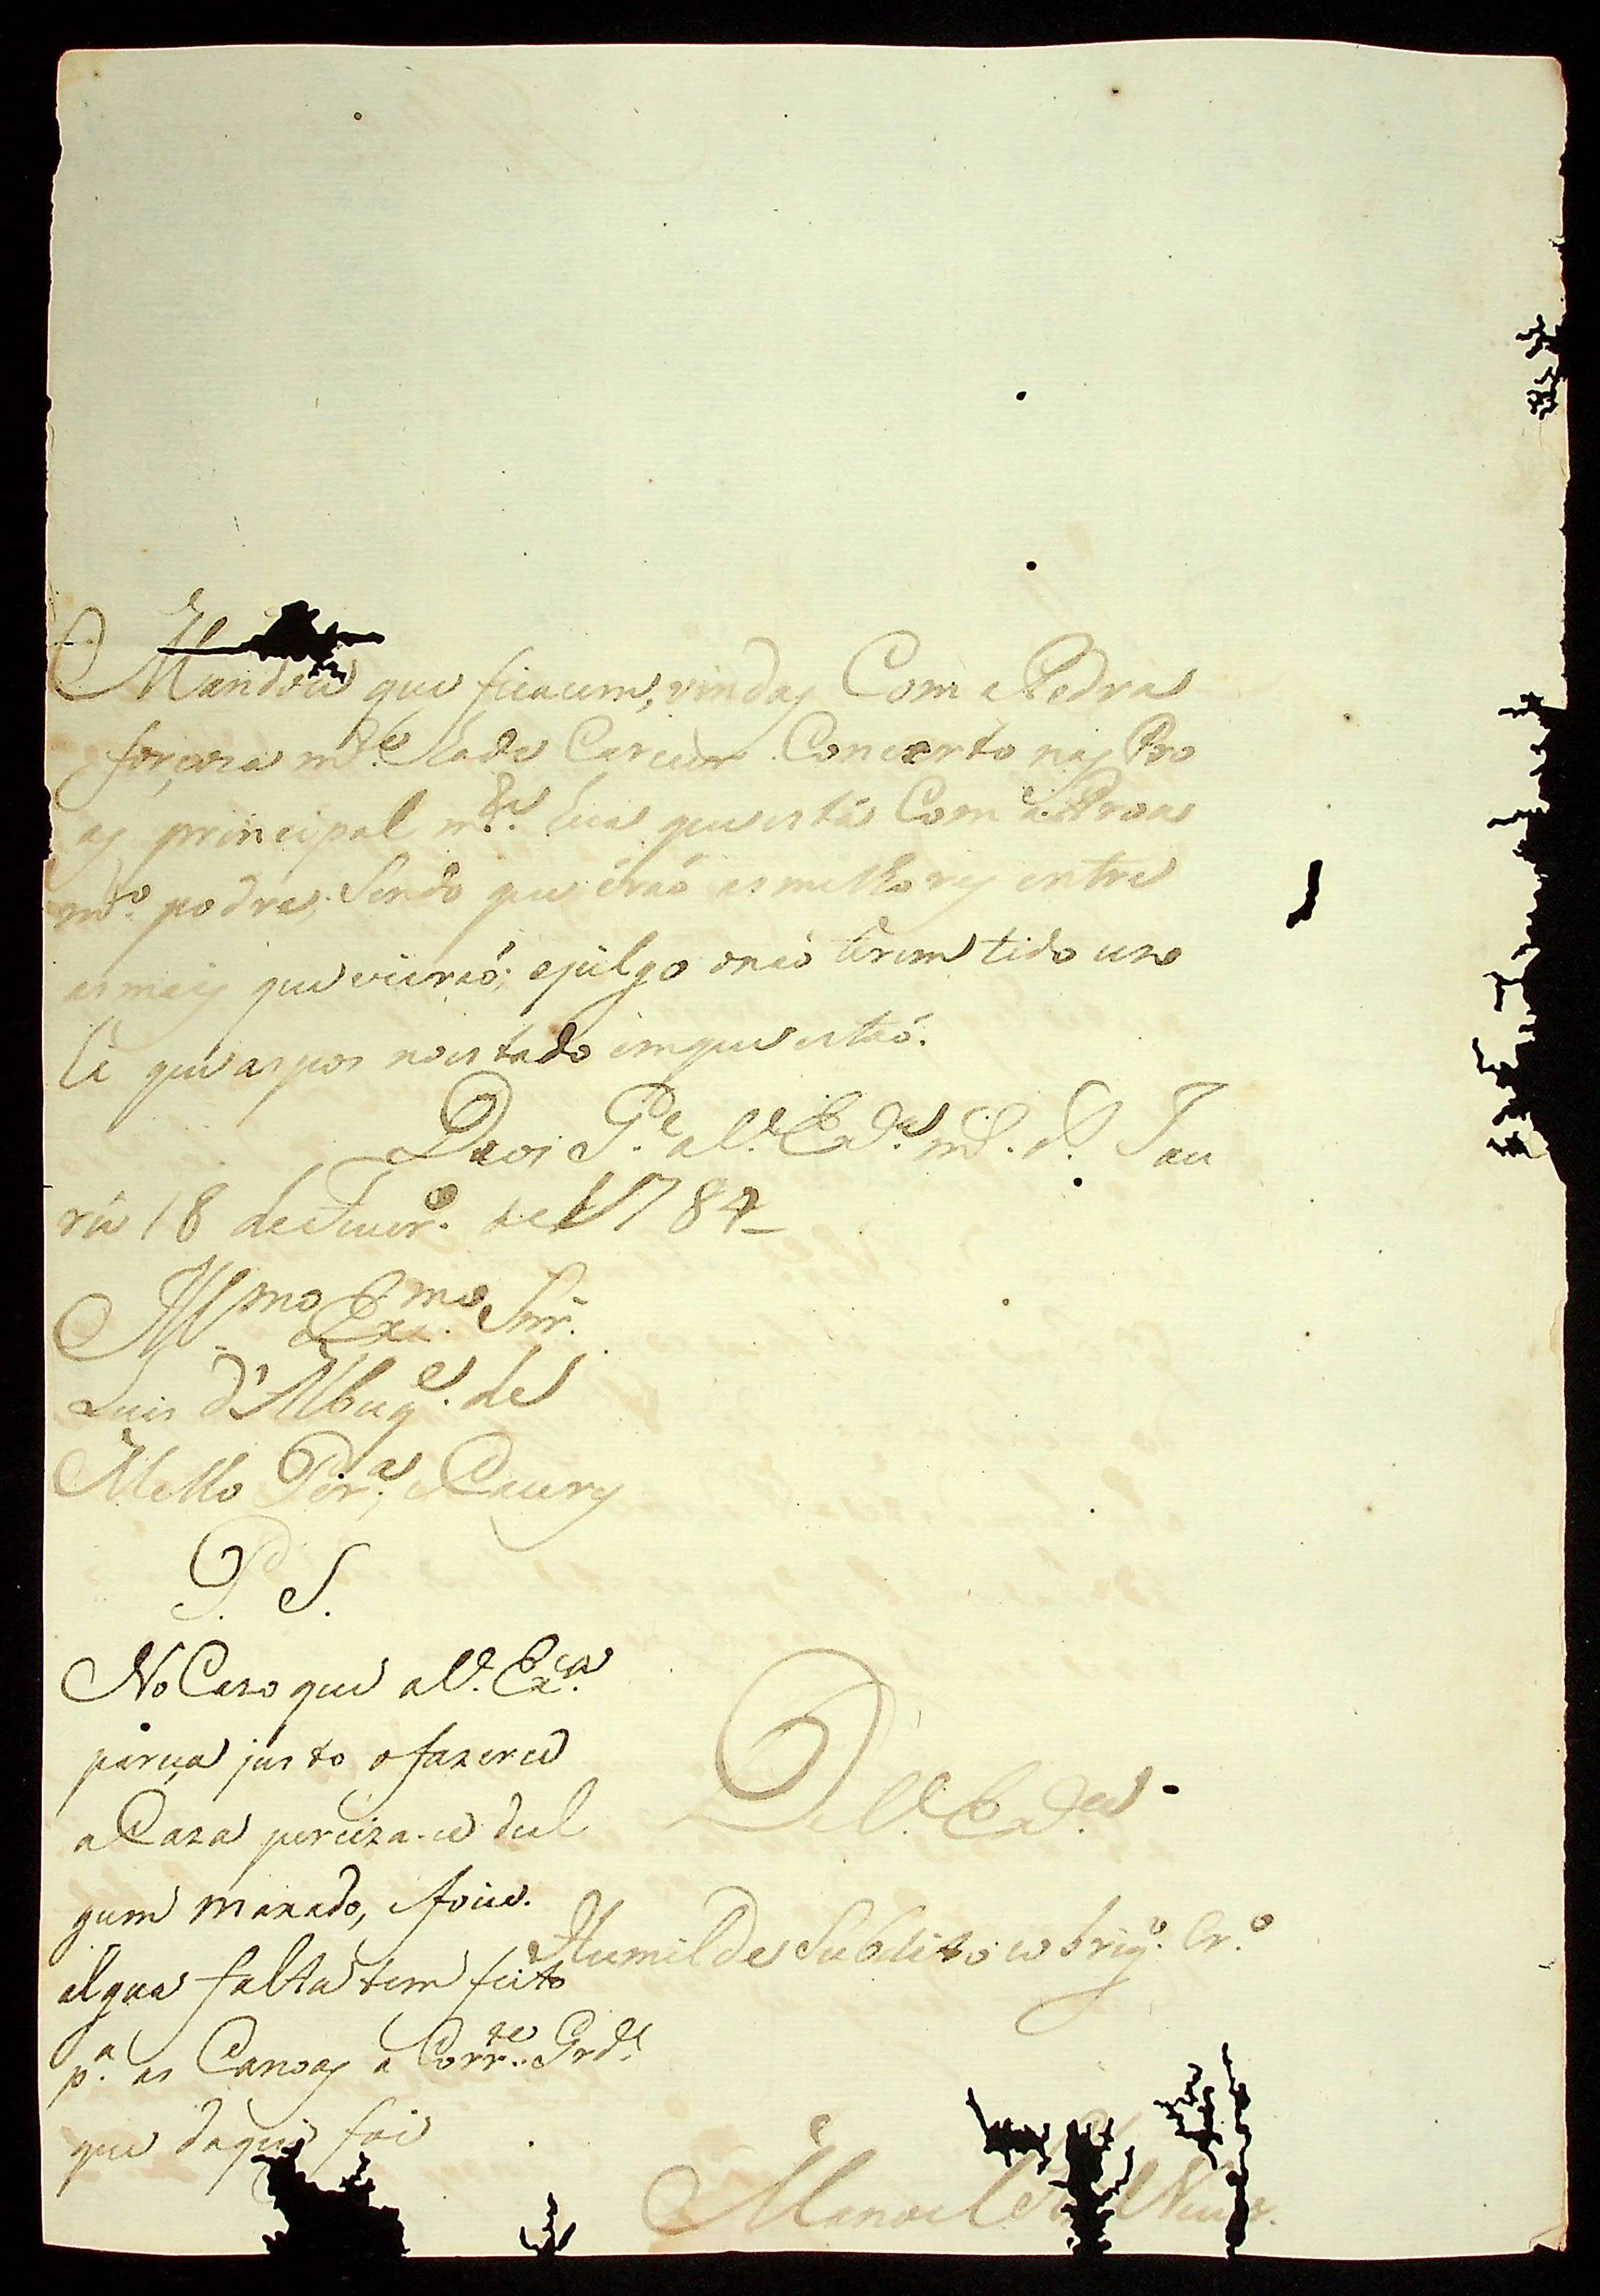 Mandou que ficacem, vindas Com a Pedra
forçoza m.te hade Carecer Concerto nas Pro
as principal m.te hua que está Com a Proa
m.to podre; Sendo que éraõ as melhores entre
as mais que vieraõ; e julgo o naõ terem tido uzo
lá que as pos no estado em que estaõ.
Deos G.e a V. Ex.ca m.s a.s Jau
rú 18 de Fever.o de 1784
Ill.mo e Ex.mo Snr.
Luis d'Albuq.e de
Mello Per.a e Caceres
P. S.
No Cazo que a V. Ex.ca
pareça justo o fazerce
a Caza perciza-ce dal
gum maxado, e fouce.
algua falta tem feito
p.a as Canoas a Corr.te Grd.e
que daqui foi
De V. Ex.ca
Humilde Subdito e obrig.o Cr.o
Manoel